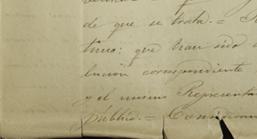 de que se trata. =
tino: que han sido
lucion correspondiente
y el mismo Representa
público. =